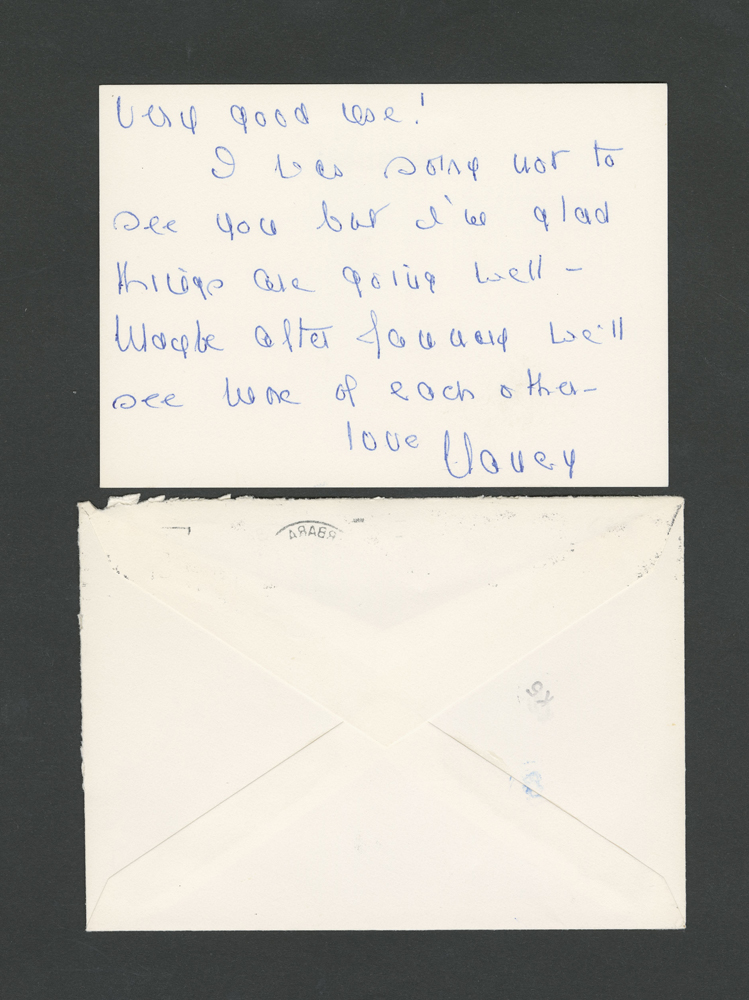 Very good use!
I was sorry not to
see you but I'm glad
things are going well -
Maybe after January we'll
see more of each other -
love Nancy
RBARA